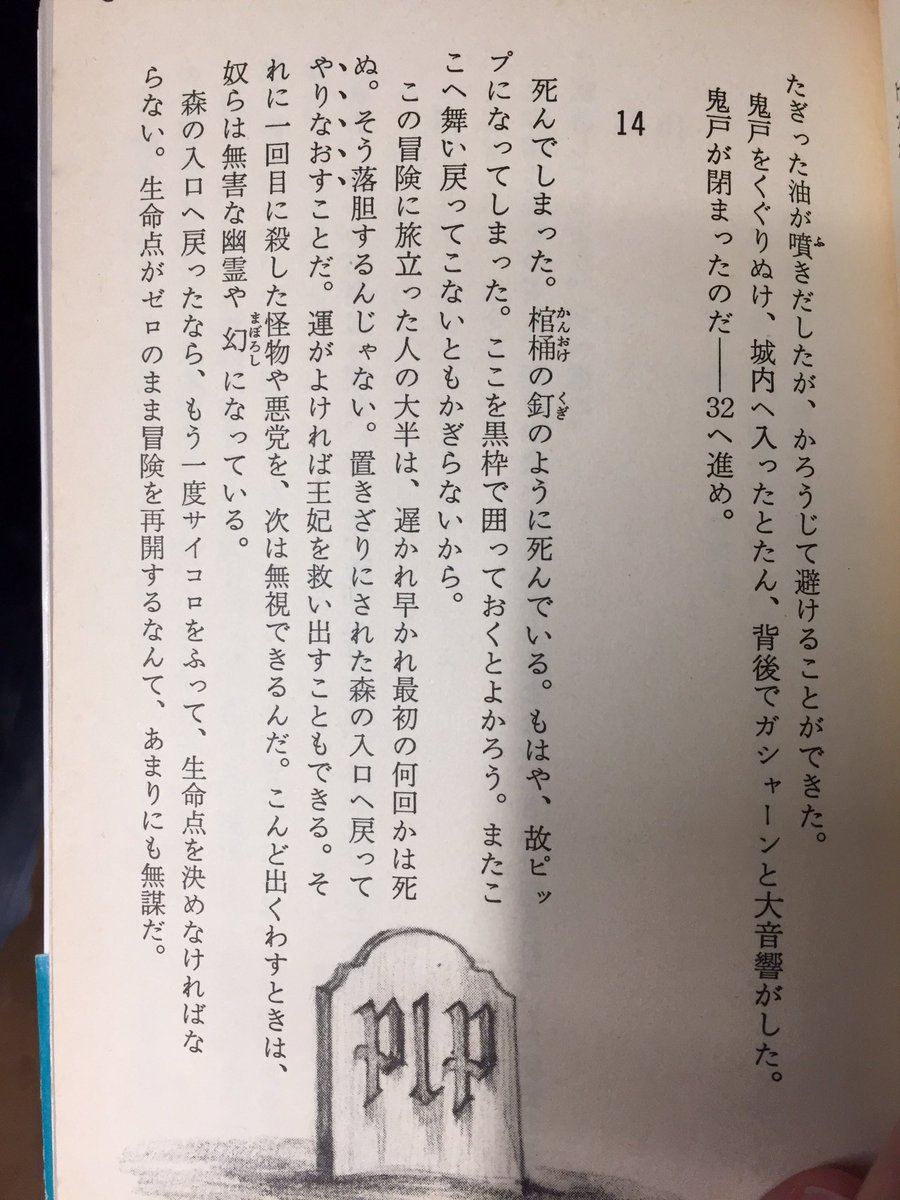 たぎった油が噴きだしたが、かろうじて避けることができた。
鬼戸をくぐりぬけ、城内へ入ったとたん、背後でガシャーンと大音響がした。
鬼戸が閉まったのだ――32へ進め。
14
死んでしまった。棺桶の釘のように死んでいる。もはや、故ピッ
プになってしまった。ここを黒枠で囲っておくとよかろう。またこ
こへ舞い戻ってこないともかぎらないから。
この冒険に旅立った人の大半は、遅かれ早かれ最初の何回かは死
ぬ。そう落胆するんじゃない。置きざりにされた森の入口へ戻って
やりなおすことだ。運がよければ王妃を救い出すこともできる。そ
れに一回目に殺した怪物や悪党を、次は無視できるんだ。こんど出くわすときは、
奴らは無害な幽霊や幻になっている。
森の入口へ戻ったなら、もう一度サイコロをふって、生命点を決めなければな
らない。生命点がゼロのまま冒険を再開するなんて、あまりにも無謀だ。